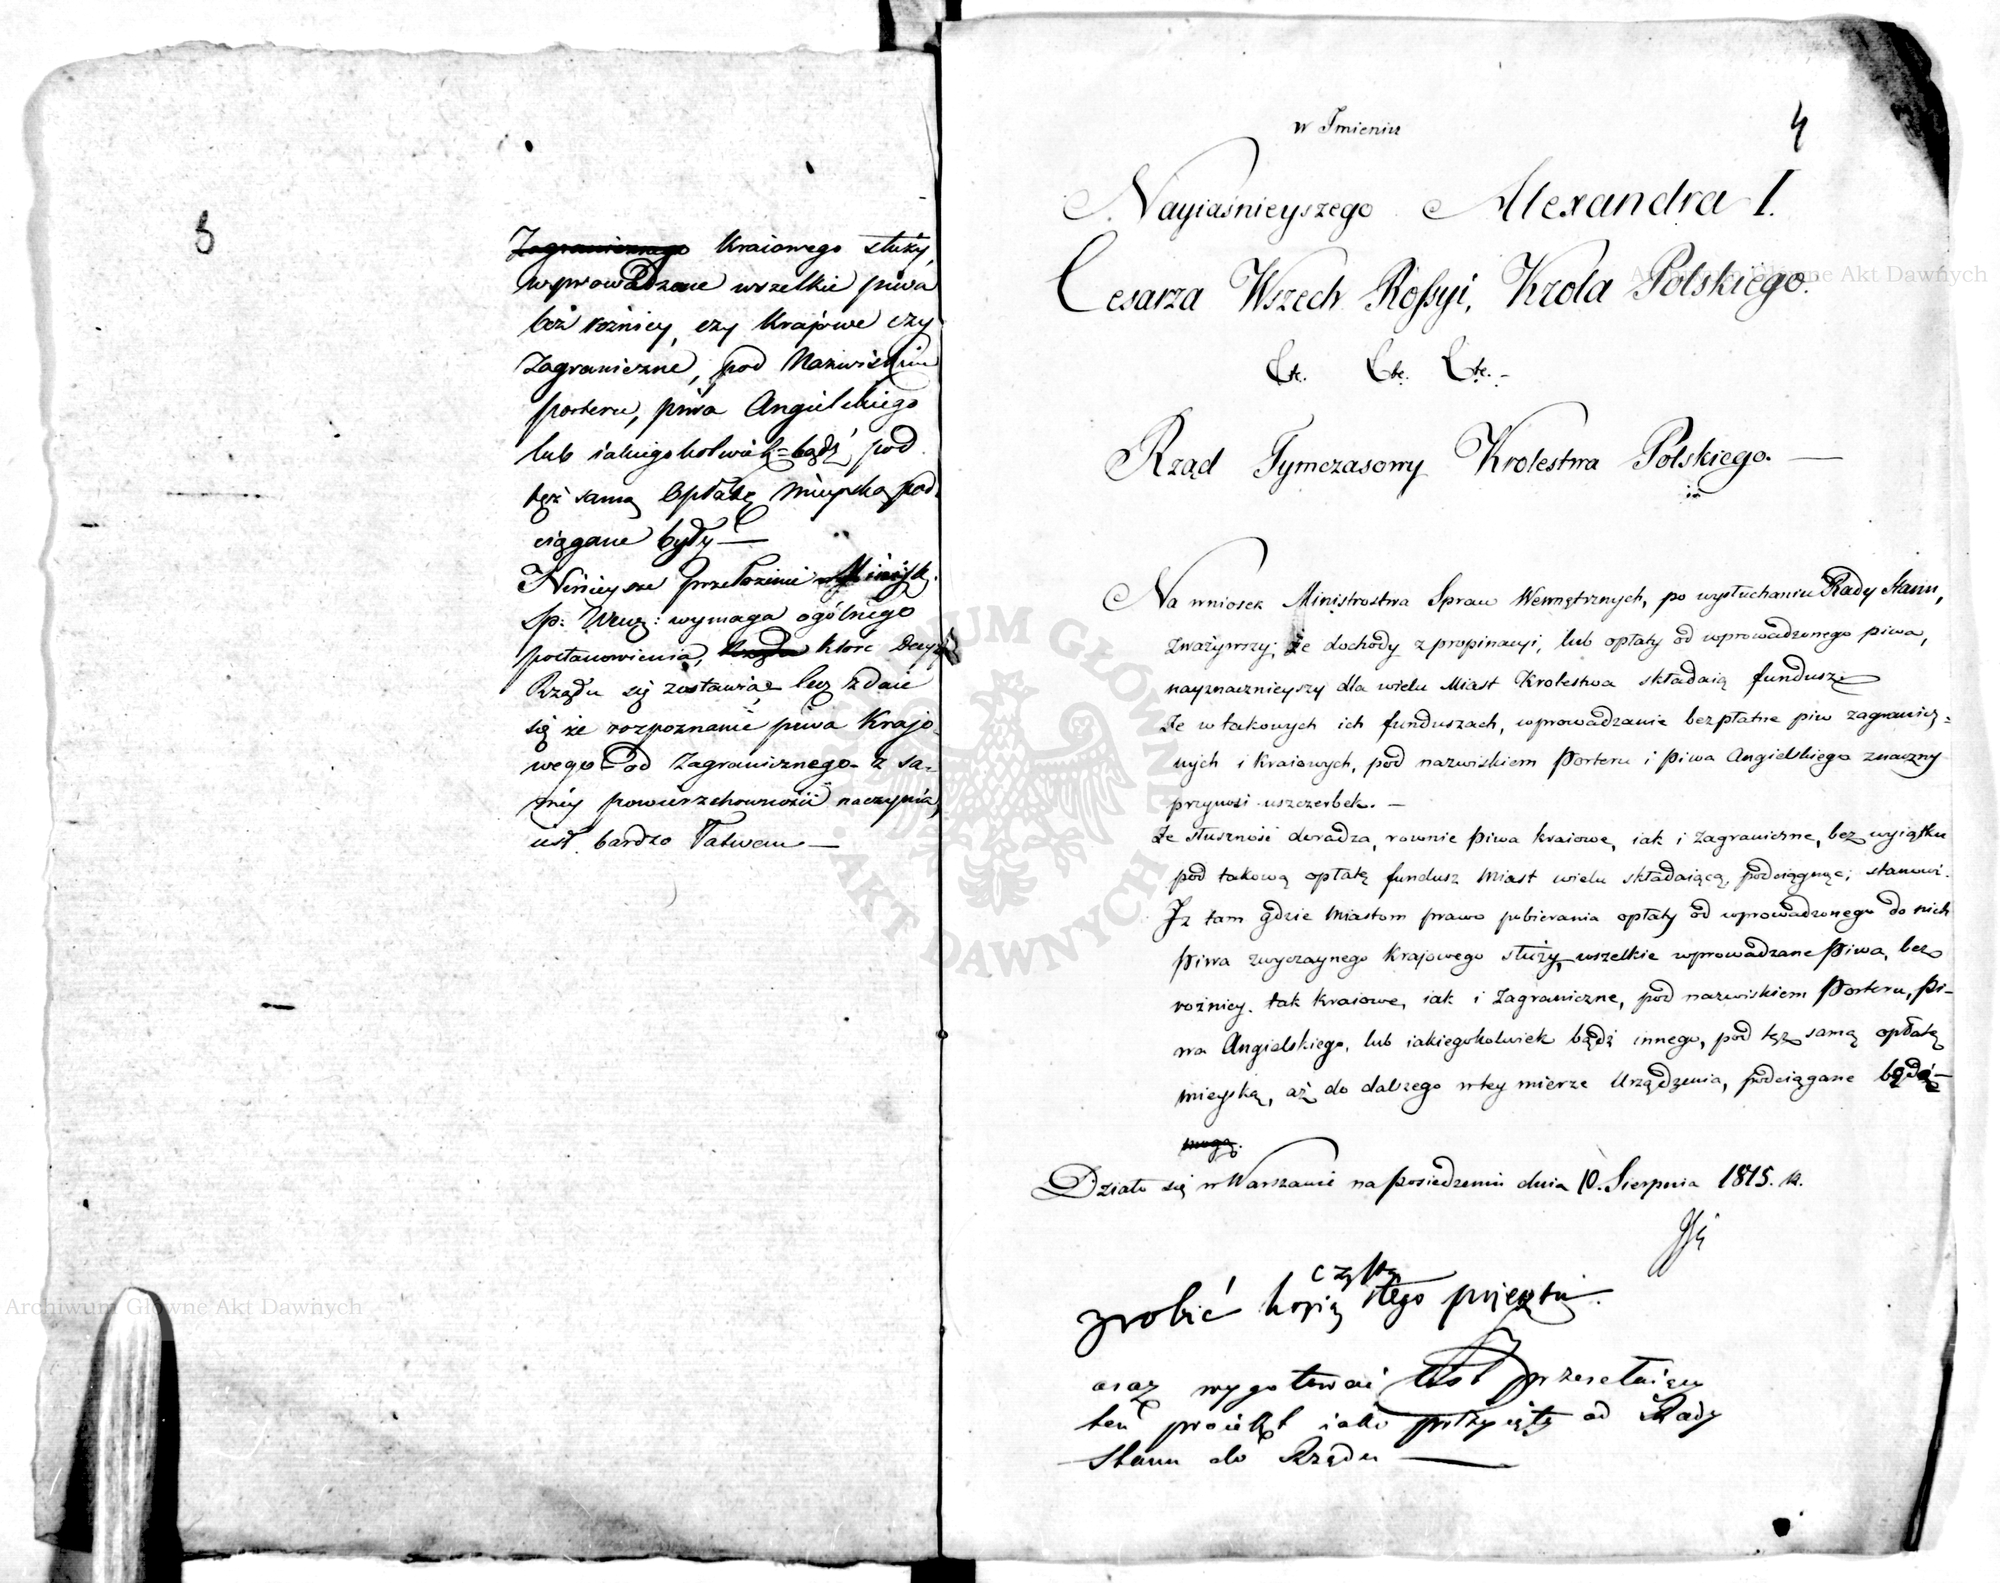 3
Zagranicznego Kraiowego służy,
wprowadzane wszelkie piwa
bez rożnicy, czy Krajowe czy
Zagraniczne, pod Nazwiskiem
porteru, piwa Angielskiego
lub iakiegokolwiek=bądź, pod
tęż samą Opłatę Mieyską pod=
ciągane były —
Ninieysze przełożenie Minist.
Sp: Wew: wymaga ogólnego
postanowienia, które Decyz:
Rządu się zostawia, lecz zdaie
się że rozpoznanie piwa Krajo=
wego od Zagranicznego z sa=
méy powierzchowności naczynia,
iest bardzo łatwem —
4
w Imieniu
Nayiaśnieyszego Alexandra I.
Cesarza Wszech Rossyi, Krola Polskiego.
Etc. Etc. Etc. -
Rząd Tymczasowy Krolestwa Polskiego. —
Na wniosek Ministrostwa Spraw Wewnętrznych, po wysłuchaniu Rady Stanu,
zważywszy; że dochody z propinacyi, lub opłaty od wprowadzonego piwa,
nayznacznieyszy dla wielu Miast Krolestwa składaią fundusz.
Że w takowych ich funduszach, wprowadzanie bezpłatne piw zagranicz=
nych i kraiowych, pod nazwiskiem Porteru i Piwa Angielskiego znaczny
przynosi uszczerbek. —
Że słuszność doradza, rownie piwa kraiowe, iak i zagraniczne, bez wyiątku
pod takową opłatę fundusz Miast wielu składaiącą, podciągnąć; stanowi.
Iż tam gdzie Miastom prawo pobierania opłaty od wprowadzonego do nich
Piwa zwyczaynego Krajowego służy, wszelkie wprowadzane Piwa, bez
rożnicy. tak kraiowe, iak i Zagraniczne, pod nazwiskiem Porteru, Pi-
wa Angielskiego, lub iakiegokolwiek bądź innego, pod tęż samą opłatę
mieyską, aż do dalszego w tey mierze Urządzenia, podciągane będą—
mogą.
Działo się w Warszawie na Posiedzeniu dnia 10. Sierpnia 1815. r.
czystą
zrobić kopią tego proiektu.
oraz wygotować list przesełaiący
ten proiekt iako przyięty od Rady
Stanu do Rządu —
Archiwum Główne Akt Dawnych
Archiwum Główne Akt Dawnych
ARCHIWUM GŁÓWNE
AKT DAWNYCH